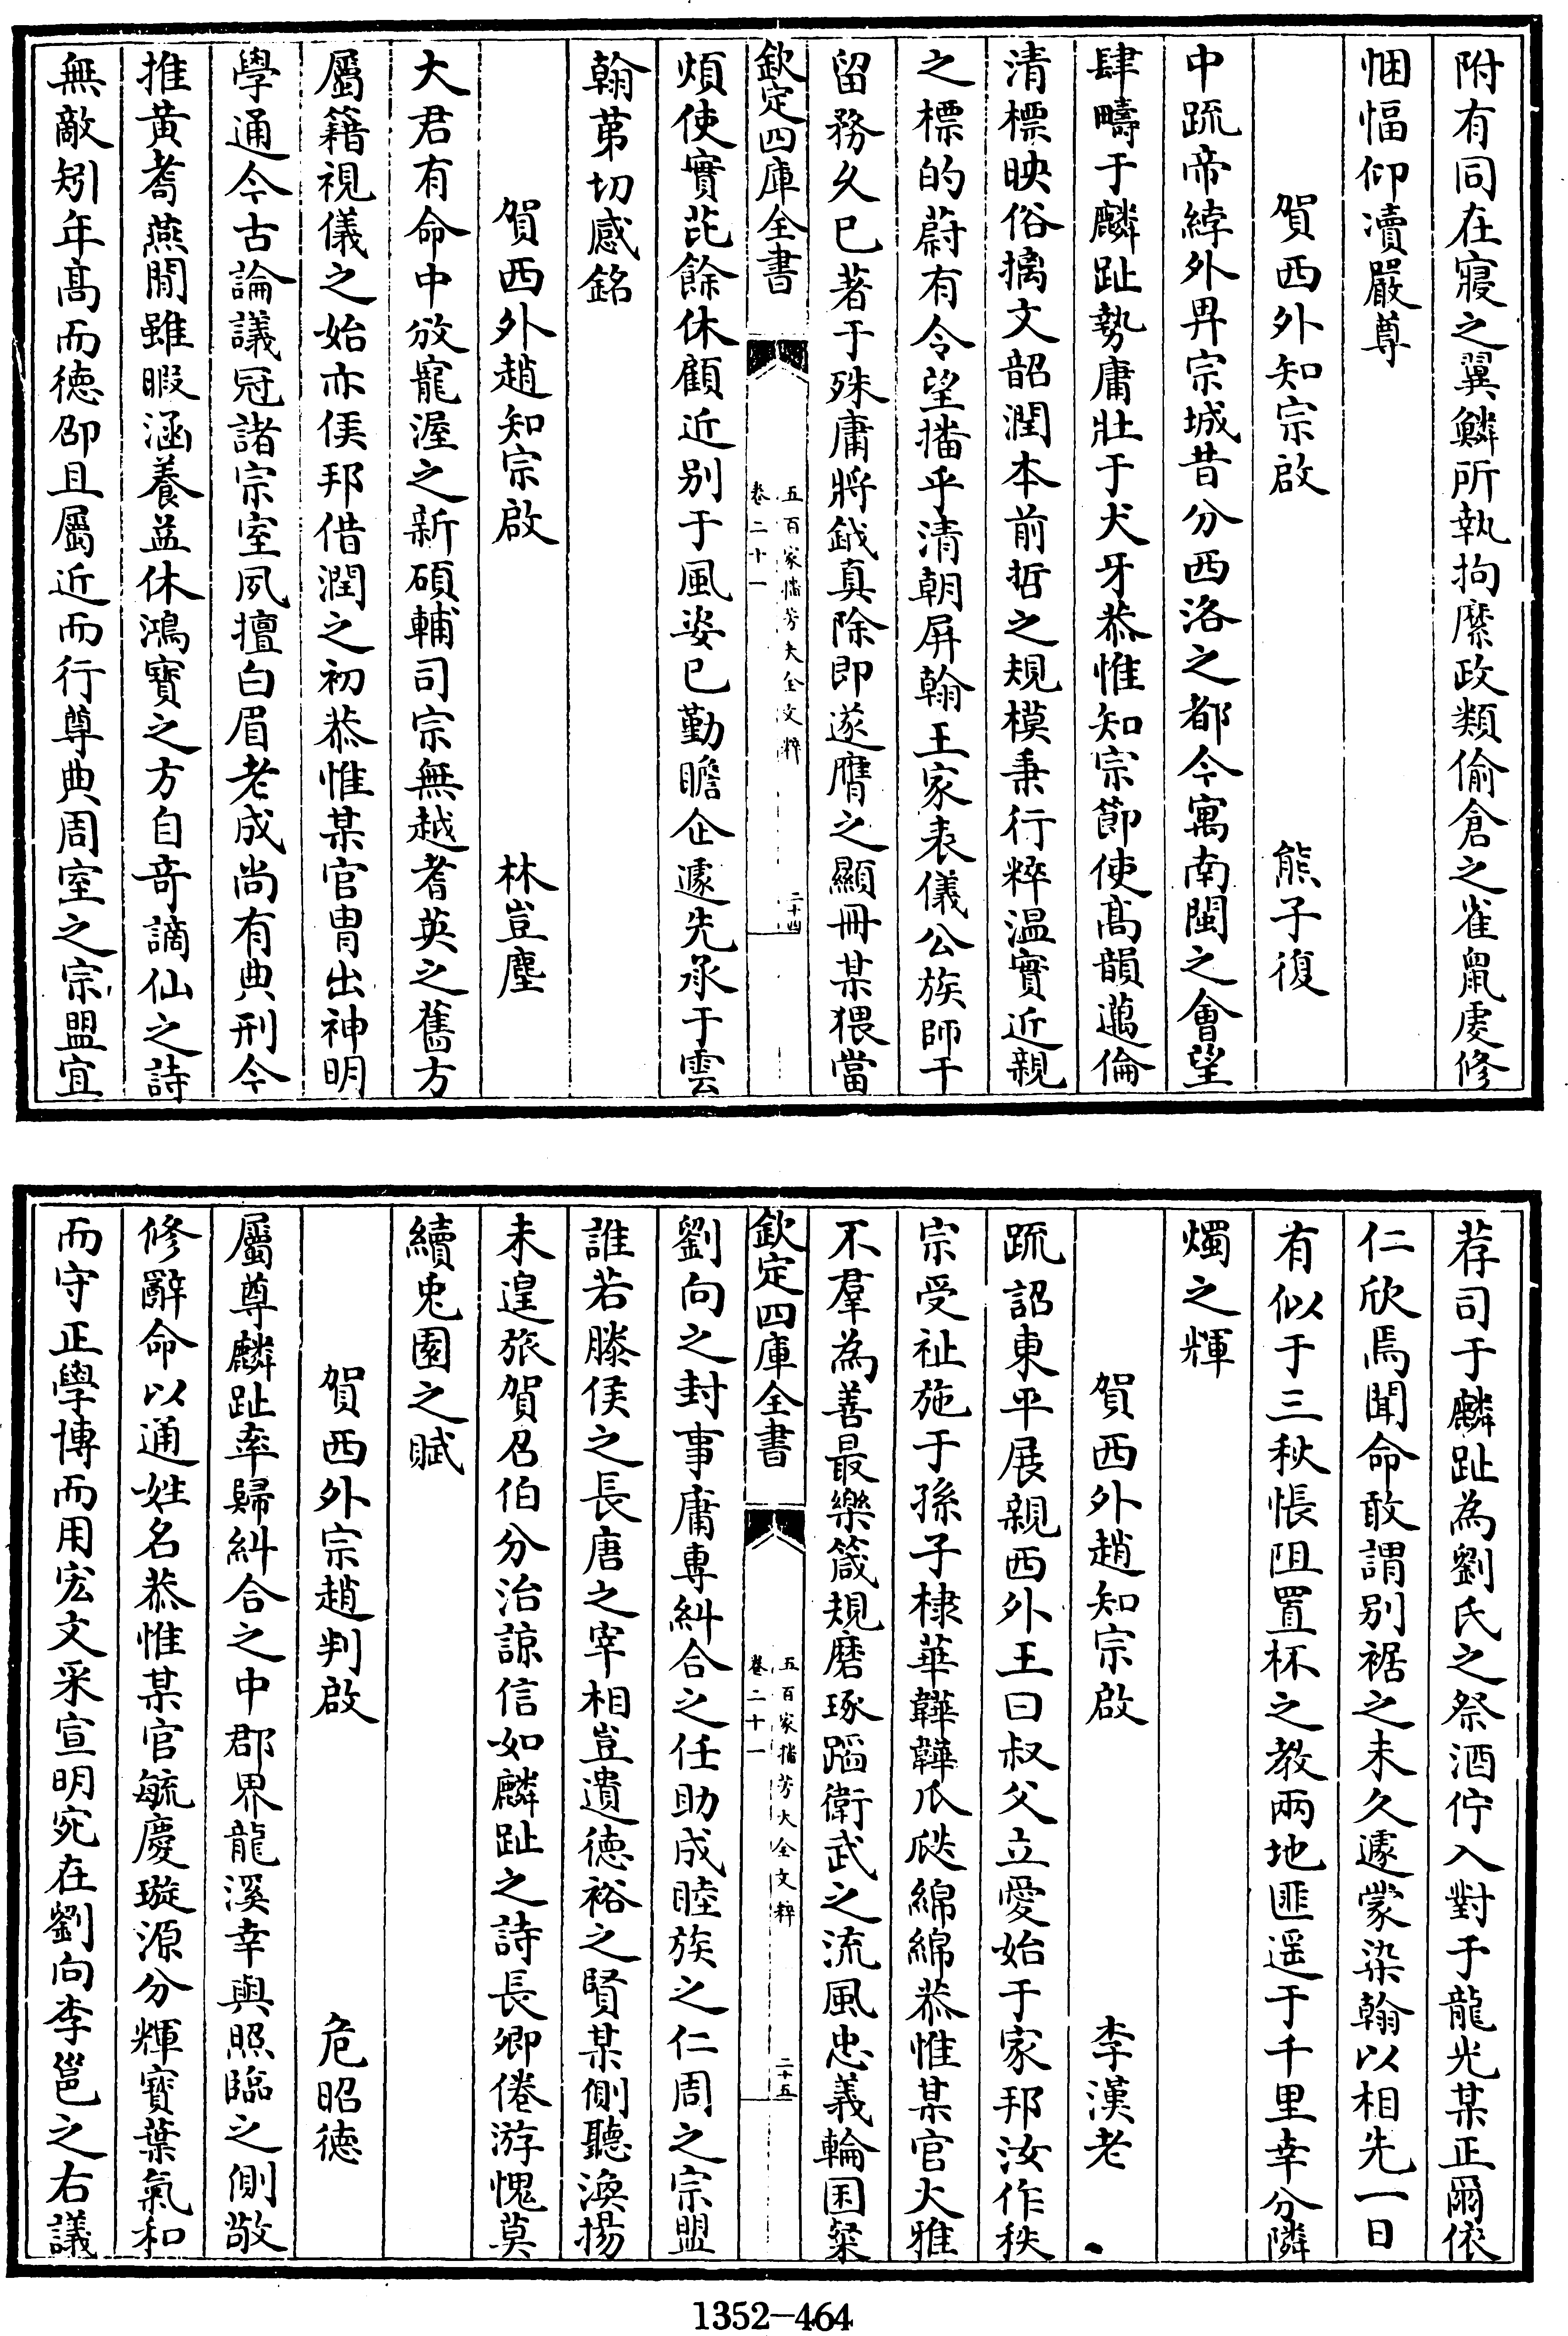 附有同在寢之翼鱗所執拘縻政類偷倉之雀鼠䖍修
悃愊仰瀆嚴尊
賀西外知宗啟 熊子復
中䟽帝綍外畀宗城昔分西洛之都今寓南閩之會望
肆疇于麟趾勢庸壯于犬牙恭惟知宗節使髙韻邁倫
清標映俗摛文韶潤本前哲之規模秉行粹温實近親
之標的蔚有令望播乎清朝屏翰王家表儀公族師干
留務久已著于殊庸將鉞真除即遂膺之顯冊某猥當
欽定四庫全書 五百家播芳大全文粹 卷二十一 二十四
煩使實芘餘休顧近别于風姿已勤瞻企遽先承于雲
翰苐切感銘
賀西外趙知宗啟 林豈塵
大君有命中放寵渥之新碩輔司宗無越耆英之舊方
屬籍視儀之始亦侯邦借潤之初恭惟某官胄出神明
學通今古論議冠諸宗室夙擅白眉老成尚有典刑今
推黄耇燕閒雖暇涵養益休鴻寳之方自竒謫仙之詩
無敵矧年髙而徳卲且屬近而行尊典周室之宗盟宜
荐司于麟趾為劉氏之祭酒佇入對于龍光某正爾依
仁欣焉聞命敢謂别裾之未久遽蒙染翰以相先一日
有似于三秋悵阻置杯之教兩地匪遥于千里幸分隣
燭之輝
賀西外趙知宗啟 李漢老
䟽詔東平展親西外王曰叔父立愛始于家邦汝作秩
宗受祉施于孫子棣華韡韡瓜瓞綿綿恭惟某官大雅
不羣為善最樂箴規磨琢蹈衛武之流風忠義輪囷粲
欽定四庫全書 五百家播芳大全文粹 卷二十一 二十五
劉向之封事庸専糾合之任助成睦族之仁周之宗盟
誰若滕侯之長唐之宰相豈遺徳裕之賢某側聽渙揚
未遑旅賀召伯分治諒信如麟趾之詩長卿倦游愧莫
續兎園之賦
賀西外宗趙判啟 危昭徳
屬尊麟趾率歸糾合之中郡界龍溪幸與照臨之側敬
修辭命以通姓名恭惟某官毓慶璇源分輝寳葉氣和
而守正學博而用宏文采宣明宛在劉向李邕之右議
1352-464